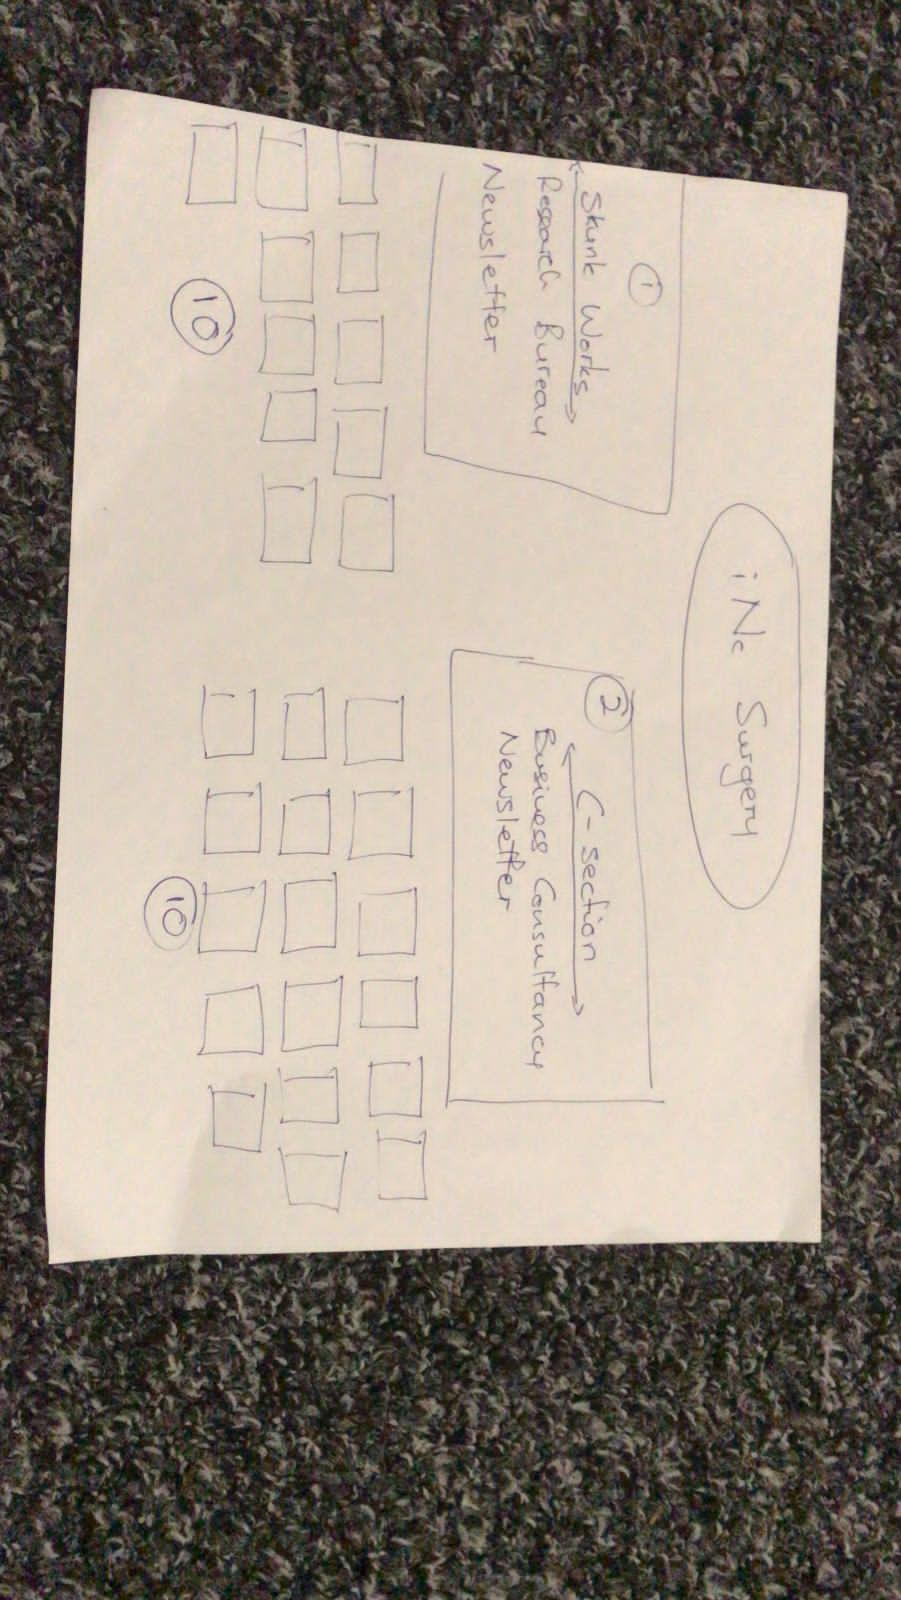 iNc Surgery
①
Skunk Works
Research Bureau
Newsletter
②
C-section
Business Consultancy
Newsletter
10
10